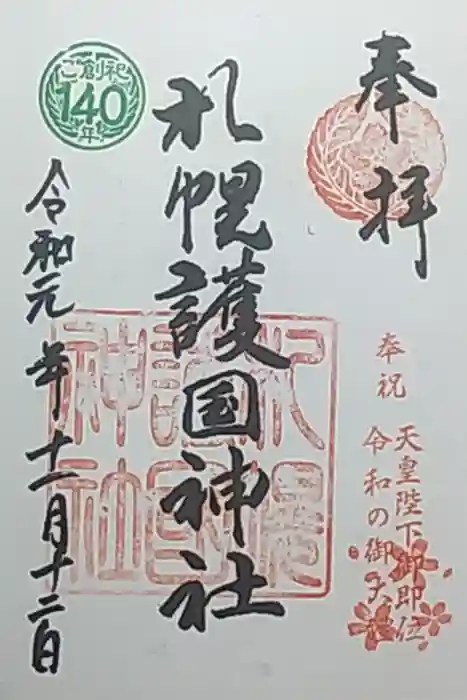 奉拝
奉祝
天皇陛下御即位
令和の御大礼
札幌護国神社
札幌護国神社
ご創祀
140
年
令和元年十一月十二日